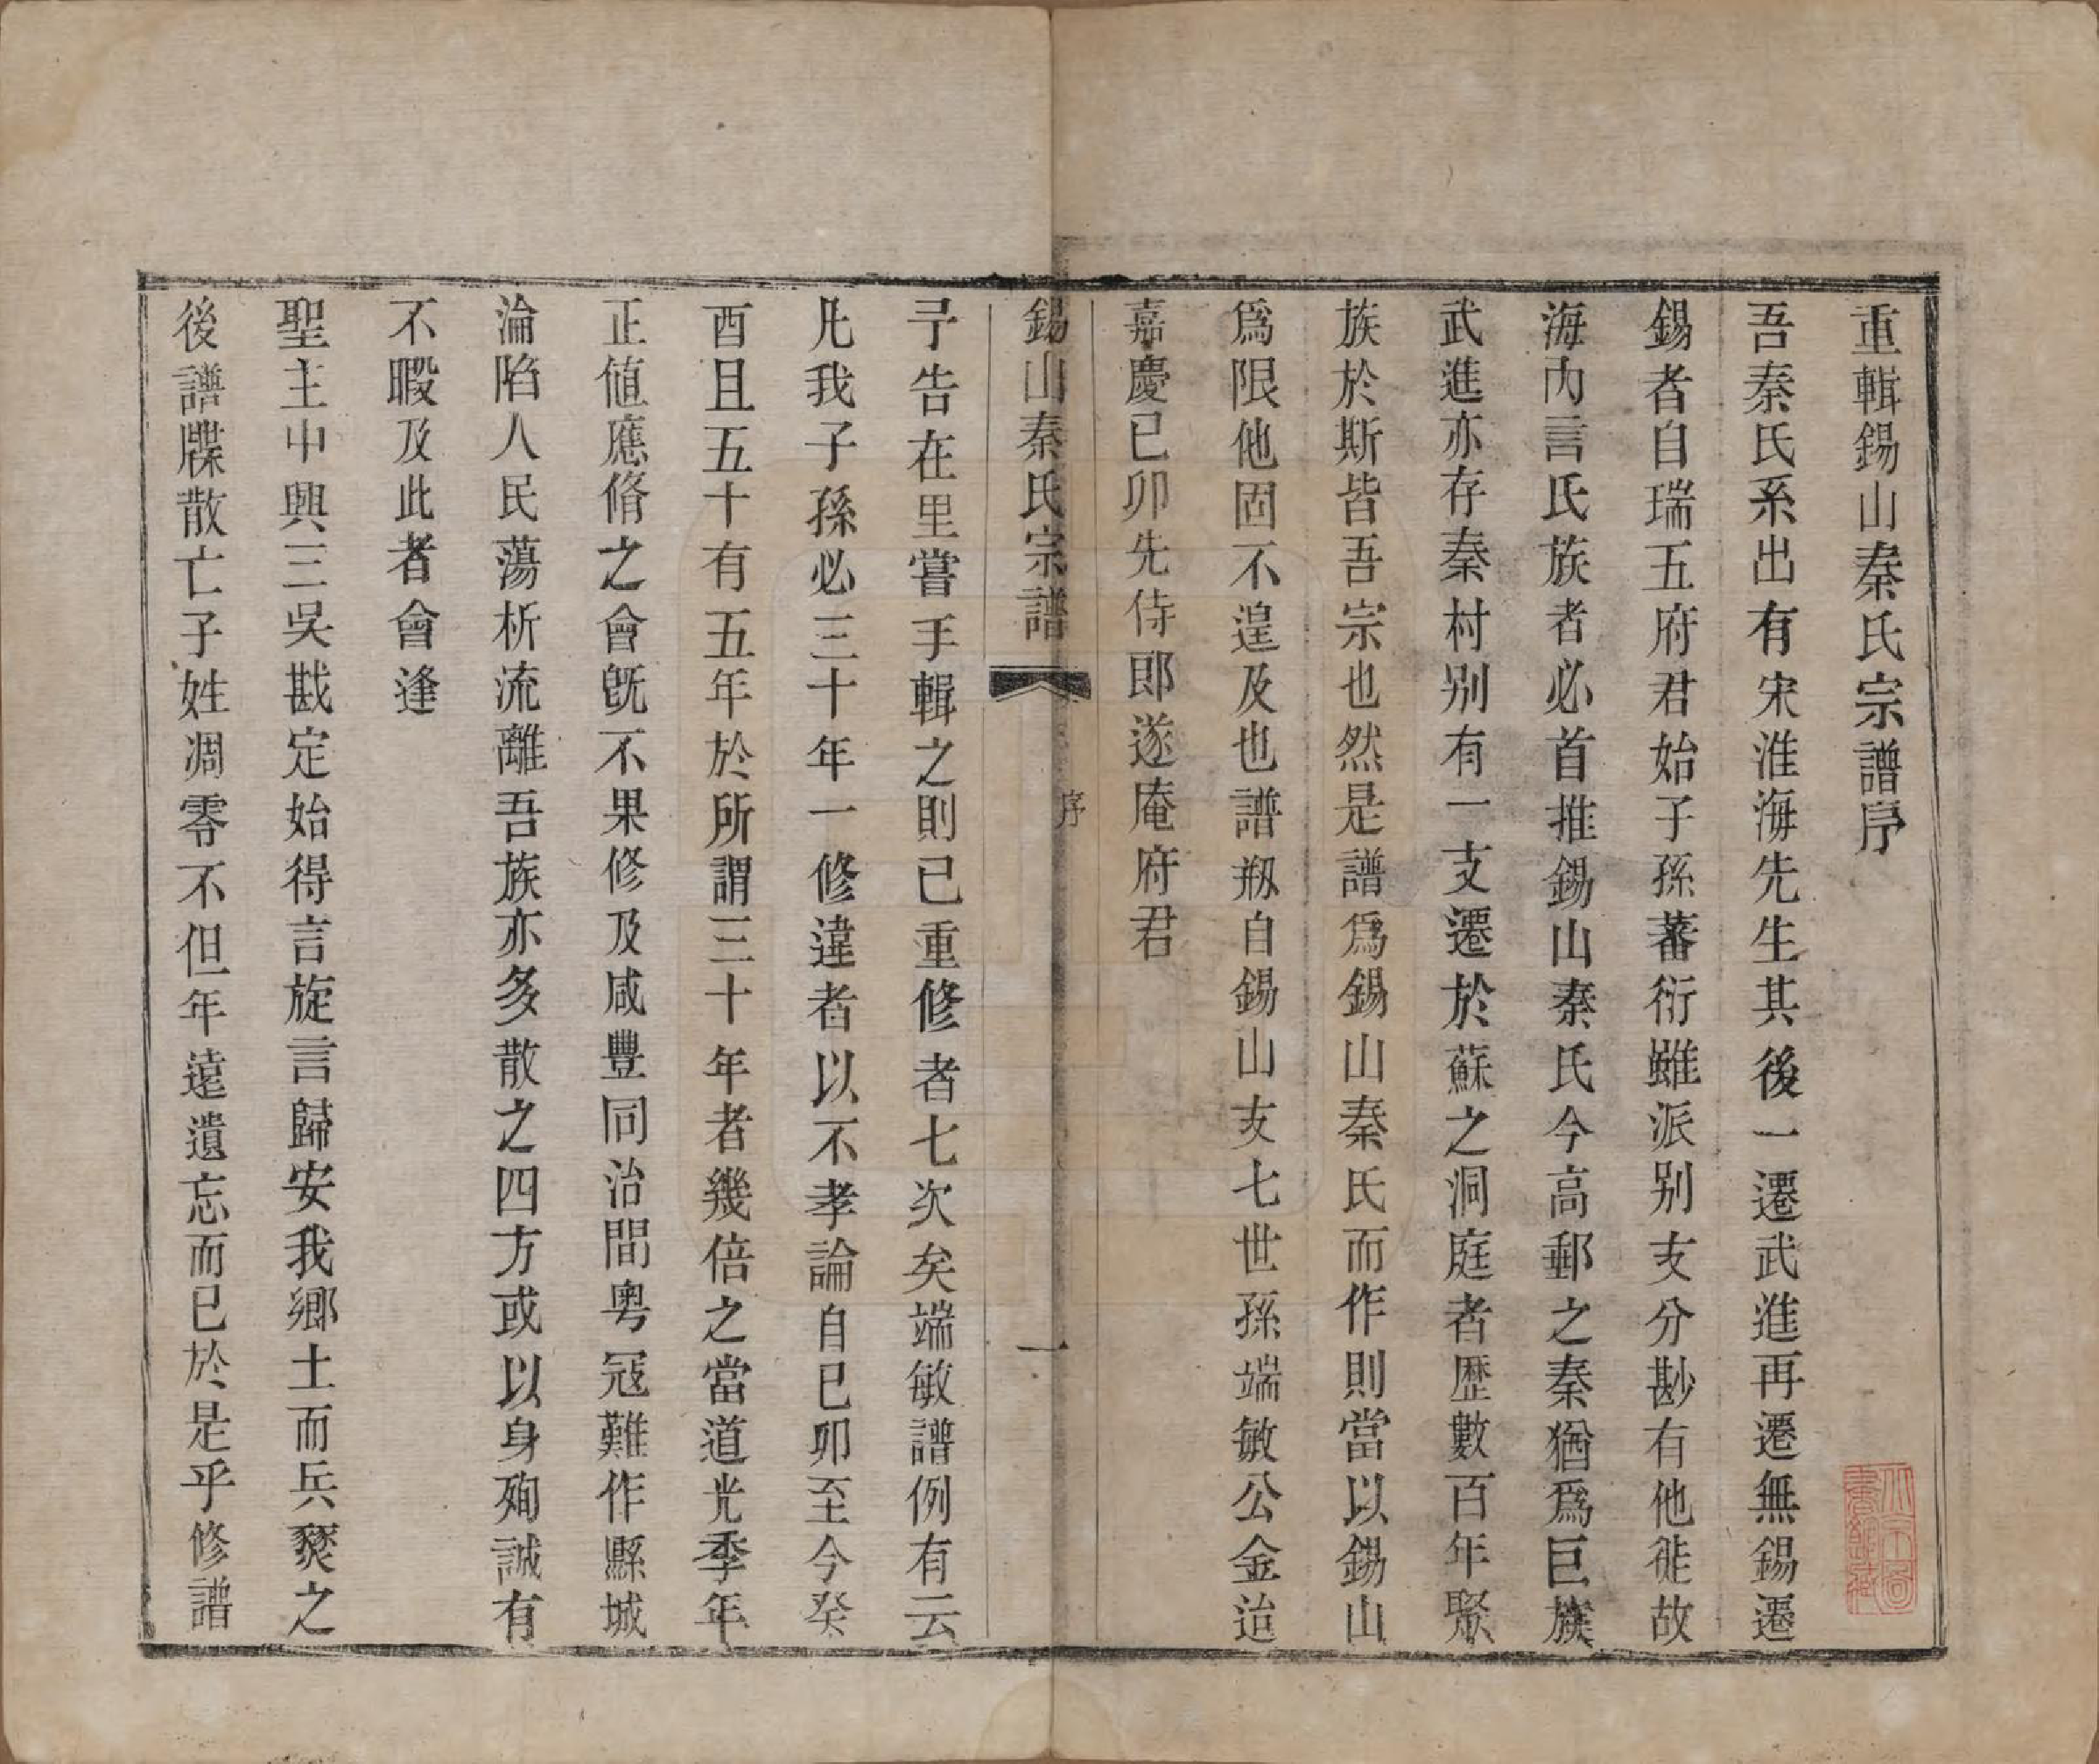 重輯錫山秦氏宗譜序
吾秦氏系出有宋淮海先生其後一遷武進再遷無錫遷
錫者自瑞五府君始子孫蕃衍雖派别支分尠有他徙故
海內言氏族者必首推錫山秦氏今高郵之秦猶爲巨族
武進亦存秦村别有一支遷於蘇之洞庭者歷數百年聚
族於斯皆吾宗也然是譜爲錫山秦氏而作則當以錫山
爲限他固不遑及也譜剏自錫山支七世孫端敏公金迨
嘉慶已卯先侍郎遂庵府君
錫山秦氏宗譜
序
一
予告在里嘗手輯之則已重修者七次矣端敏譜例有云
凡我子孫必三十年一修違者以不孝論自已卯至今癸
酉且五十有五年於所謂三十年者幾倍之當道光季年
正値應脩之會旣不果修及咸豐同治間粤冦難作縣城
淪陷人民蕩析流離吾族亦多散之四方或以身殉誠有
不暇及此者會逢
聖主中興三吳戡定始得言旋言歸安我鄉土而兵燹之
後譜牒散亡子姓凋零不但年遠遺忘而已於是乎修譜